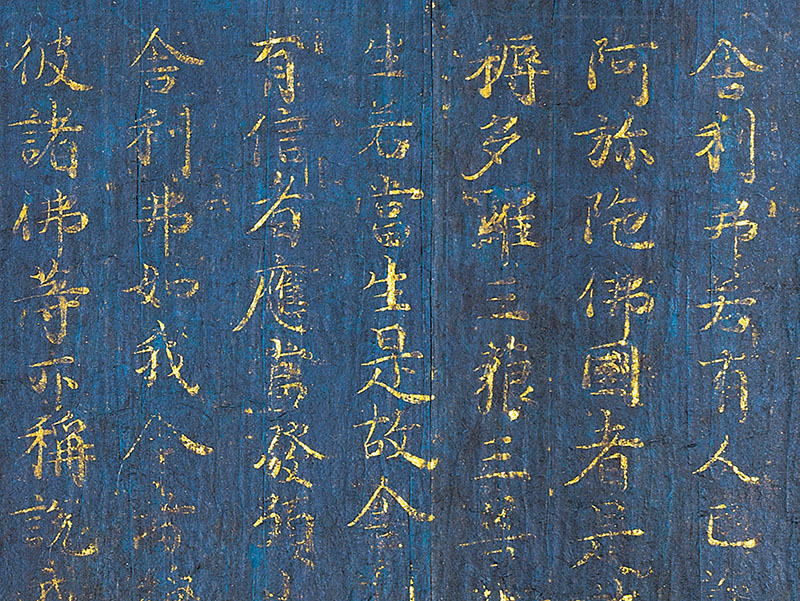 舍利弗若有人已
阿弥陁佛國者是
耨多羅三藐三菩
生若當生是故舍
有信者應當發
舍利弗如我今
彼諸佛等亦稱說